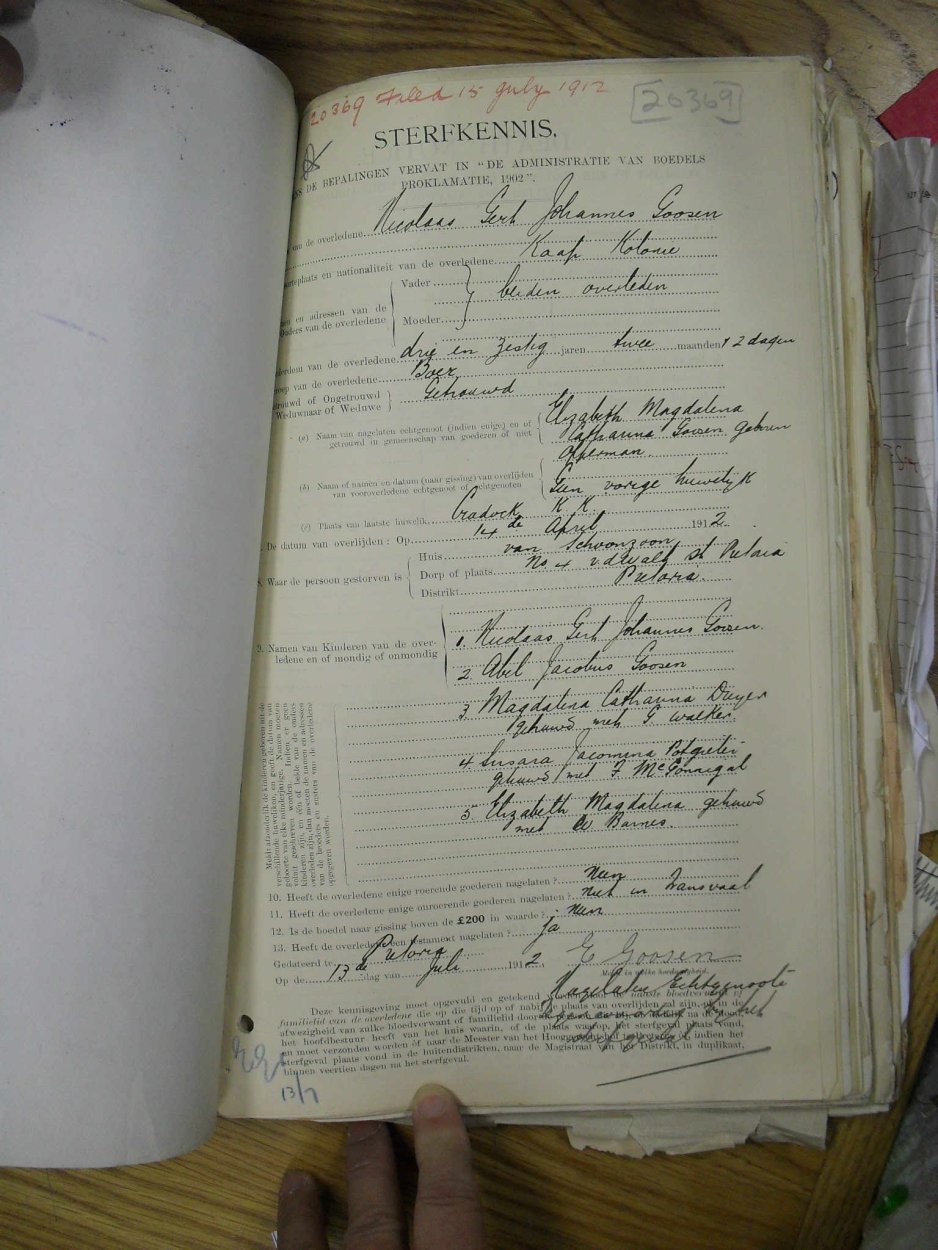 20369 Filed 15 July 1912
[20369]
STERFKENNIS.
NS DE BEPALINGEN VERVAT IN "DE ADMINISTRATIE VAN BOEDELS
PROKLAMATIE, 1902".
van de overledene Nicolaas Gert Johannes Goosen
orteplaats en nationaliteit van de overledene Kaap Kolonie
Vader
en en adressen van de
Ouders van de overledene
beiden overleden
Moeder
derdom van de overledene drie en zestig jaren twee maanden + 2 dagen
eep van de overledene Boer
trouwd of Ongetrouwd
Weduwnaar of Weduwe
Getrouwd
(a) Naam van nagelaten echtgenoot (indien enige) en of
getrouwd in gemeenschap van goederen of niet
Elizabeth Magdalena
Catharina Goosen geboren
Opperman
(b) Naam of namen en datum (naar gissing) van overlijden
van vooroverledene echtgenoot of echtgenoten
Geen vorige huwelijk
(c) Plaats van laatste huwelik Cradock K K
De datum van overlijden : Op 14 de April 1912
Huis van Schoonzoon
8. Waar de persoon gestorven is
Dorp of plaats No 4 v d Walt St Pretoria
Distrikt Pretoria.
9. Namen van Kinderen van de over-
ledene en of mondig of onmondig
1. Nicolaas Gert Johannes Goosen.
2. Abel Jacobus Goosen
3. Magdalena Catharina Dreyer
gehuwd met G Walker.
4. Susara Jacomina Potgieter
gehuwd met F McGonnegal
5. Elizabeth Magdalena gehuwd
met Barnes.
Meldt afzonderlik de kinderen geboren uit de
verschillende huweliken, en geeft de datum van
geboorte van elke minderjarige. Namen moeten
voluit geschreven worden. Indien er geen
kinderen zijn, en één of beide van de ouders
overleden zijn, dan moeten de namen en adressen
van de broeders en zusters van de overledene
opgegeven worden.
10. Heeft de overledene enige roerende goederen nagelaten ? Neen
11. Heeft de overledene enige onroerende goederen nagelaten ? Niet in Transvaal
12. Is de boedel naar gissing boven de £200 in waarde ? Neen
13. Heeft de overledene een testament nagelaten ? Ja
Gedateerd te Pretoria
Op de 13 de dag van Juli 1912 E Goosen
Meldt in welke hoedanigheid.
Nagelaten Echtgenoote
Deze kennisgeving moet opgevuld en getekend worden door de naaste bloedverwant of
familielid van de overledene die op die tijd op of nabij de plaats van overlijden zal zijn, of in de
afwezigheid van zulke bloedverwant of familielid door
het hoofdbestuur heeft van het huis waarin, of de plaats waarop, het sterfgeval plaats vond,
en moet verzonden worden òf naar de Meester van het Hooggerechtshof indien het
sterfgeval plaats vond in de buitendistrikten, naar de Magistraat van het Distrikt, in duplikaat,
binnen veertien dagen na het sterfgeval.
13/7